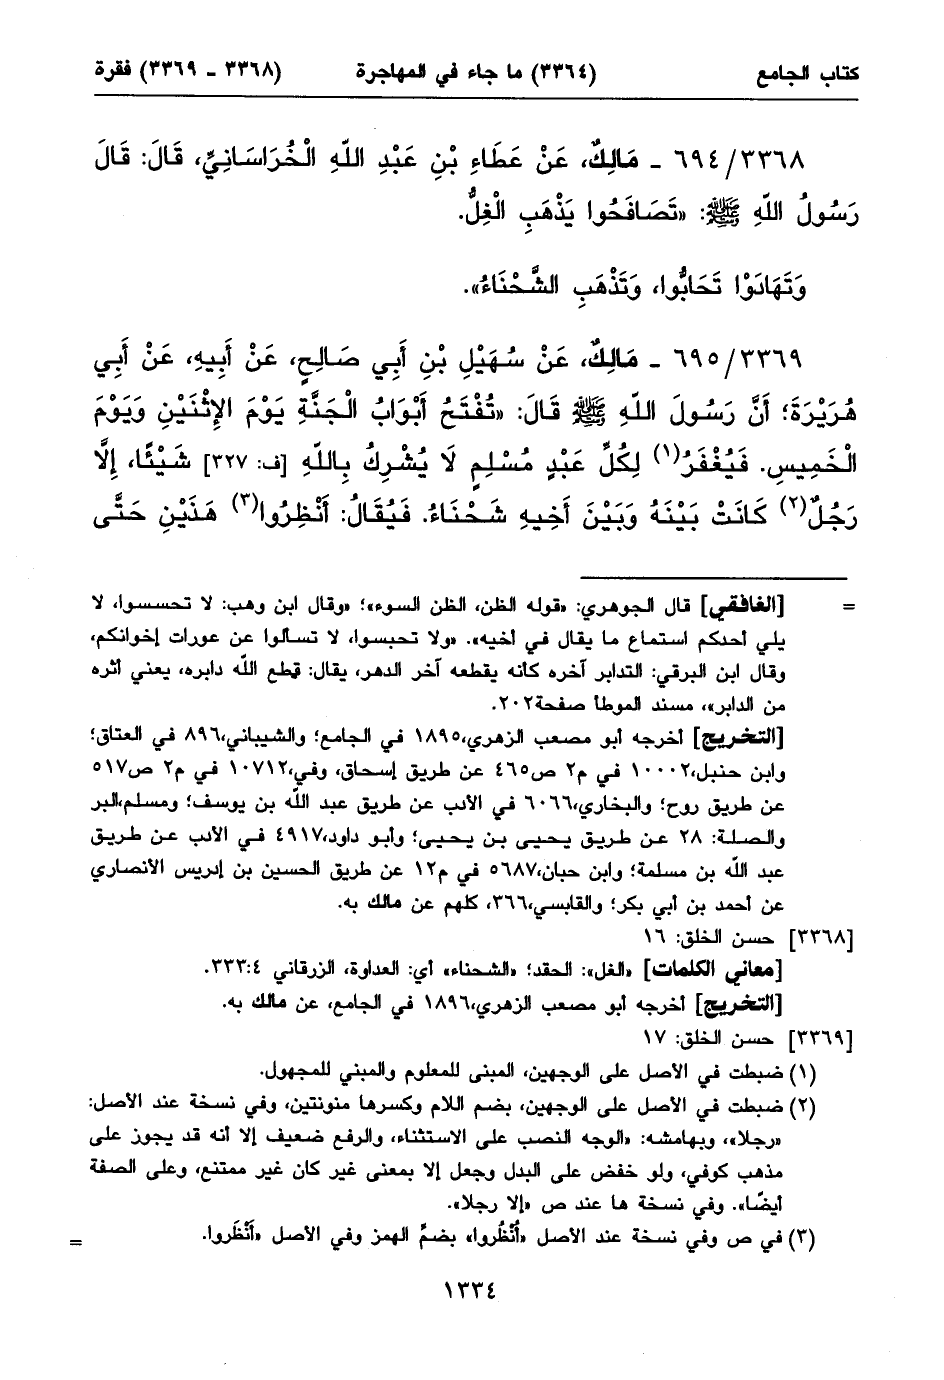 كتاب الجامع (٣٣٦٤) ما جاء في المهاجرة (٣٣٦٨ ـ ٣٣٦٩) فقرة
٦٩٤/٣٣٦٨ ـ مَالِكٌ، عَنْ عَطَاءِ بْنِ عَبْدِ اللّهِ الْخُرَاسَانِيِّ، قَالَ: قَالَ
رَسُولُ اللّهِ ﷺ: «تَصَافَحُوا يَذْهَبِ الْغِلُّ.
وَتَهَادَوْا تَحَابُّوا، وَتَذْهَبِ الشَّحْنَاءُ».
٦٩٥/٣٣٦٩ ـ مَالِكٌ، عَنْ سُهَيْلِ بْنِ أَبِي صَالِحٍ، عَنْ أَبِيهِ، عَنْ أَبِي
هُرَيْرَةَ؛ أَنَّ رَسُولَ اللّهِ ﷺ قَالَ: «تُفْتَحُ أَبْوَابُ الْجَنَّةِ يَوْمَ الإِثْنَيْنِ وَيَوْمَ
الْخَمِيسِ. فَيُغْفَرُ(١) لِكُلِّ عَبْدٍ مُسْلِمٍ لَا يُشْرِكُ بِاللّهِ [ف: ٣٢٧] شَيْئًا، إِلَّا
رَجُلٌ(٢) كَانَتْ بَيْنَهُ وَبَيْنَ أَخِيهِ شَحْنَاءُ. فَيُقَالُ: أَنْظِرُوا(٣) هَذَيْنِ حَتَّى
= [الغافقي] قال الجوهري: «قوله الظن، الظن السوء»؛ «وقال ابن وهب: لا تحسسوا، لا
يلي أحدكم استماع ما يقال في أخيه». «ولا تحبسوا، لا تسألوا عن عورات إخوانكم،
وقال ابن البرقي: التدابر آخره كأنه يقطعه آخر الدهر، يقال: قطع اللّه دابره، يعني أثره
من الدابر»، مسند الموطأ صفحة٢٠٢.
[التخريج] أخرجه أبو مصعب الزهري،١٨٩٥ في الجامع؛ والشيباني،٨٩٦ في العتاق؛
وابن حنبل،١٠٠٠٢ في م٢ ص٤٦٥ عن طريق إسحاق، وفي،١٠٧١٢ في م٢ ص٥١٧
عن طريق روح؛ والبخاري،٦٠٦٦ في الأدب عن طريق عبد اللّه بن يوسف؛ ومسلم،البر
والصلة: ٢٨ عن طريق يحيى بن يحيى؛ وأبو داود،٤٩١٧ في الأدب عن طريق
عبد اللّه بن مسلمة؛ وابن حبان،٥٦٨٧ في م١٢ عن طريق الحسين بن إدريس الأنصاري
عن أحمد بن أبي بكر؛ والقابسي،٣٦٦، كلهم عن مالك به.
[٣٣٦٨] حسن الخلق: ١٦
[معاني الكلمات] «الغل»: الحقد؛ «الشحناء» أي: العداوة، الزرقاني ٣٣٣:٤.
[التخريج] أخرجه أبو مصعب الزهري،١٨٩٦ في الجامع، عن مالك به.
[٣٣٦٩] حسن الخلق: ١٧
(١) ضبطت في الأصل على الوجهين، المبنى للمعلوم والمبني للمجهول.
(٢) ضبطت في الأصل على الوجهين، بضم اللام وكسرها منونتين، وفي نسخة عند الأصل:
«رجلا»، وبهامشه: «الوجه النصب على الاستثناء، والرفع ضعيف إلا أنه قد يجوز على
مذهب كوفي، ولو خفض على البدل وجعل إلا بمعنى غير كان غير ممتنع، وعلى الصفة
أيضًا». وفي نسخة ها عند ص «إلا رجلا».
(٣) في ص وفي نسخة عند الأصل «أُنْظُروا» بضمِّ الهمز وفي الأصل «أَنْظَروا. =
١٣٣٤